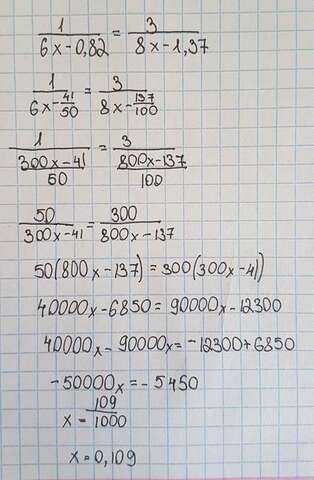 1/(6x-0,82) = 3/(8x-1,37)
1/(6x-41/50) = 3/(8x-137/100)
1/((300x-41)/50) = 3/((800x-137)/100)
50/(300x-41) = 300/(800x-137)
50(800x-137)=300(300x-41)
40000x-6850=90000x-12300
40000x-90000x=-12300+6850
-50000x=-5450
x=109/1000
x=0,109